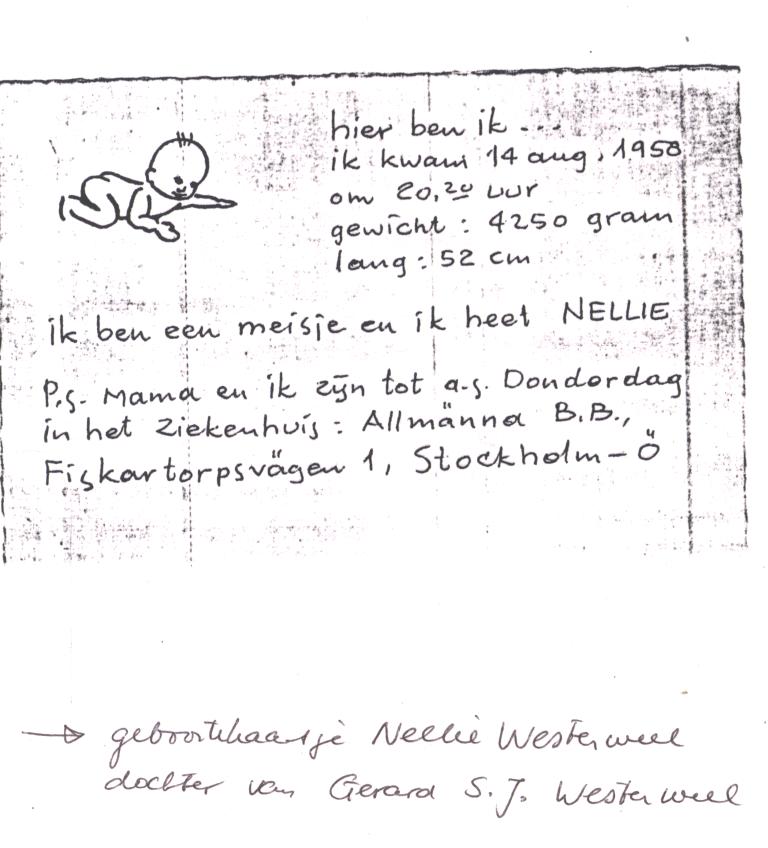 hier ben ik ....
ik kwam 14 aug. 1958
om 20,20 uur
gewicht : 4250 gram
lang : 52 cm
ik ben een meisje en ik heet NELLIE
P.S. Mama en ik zijn tot a.s. Donderdag
in het Ziekenhuis : Allmänna B.B.,
Fiskartorpsvägen 1, Stockholm - Ö
→ geboortekaartje Nellie Westerweel
dochter van Gerard S.J. Westerweel